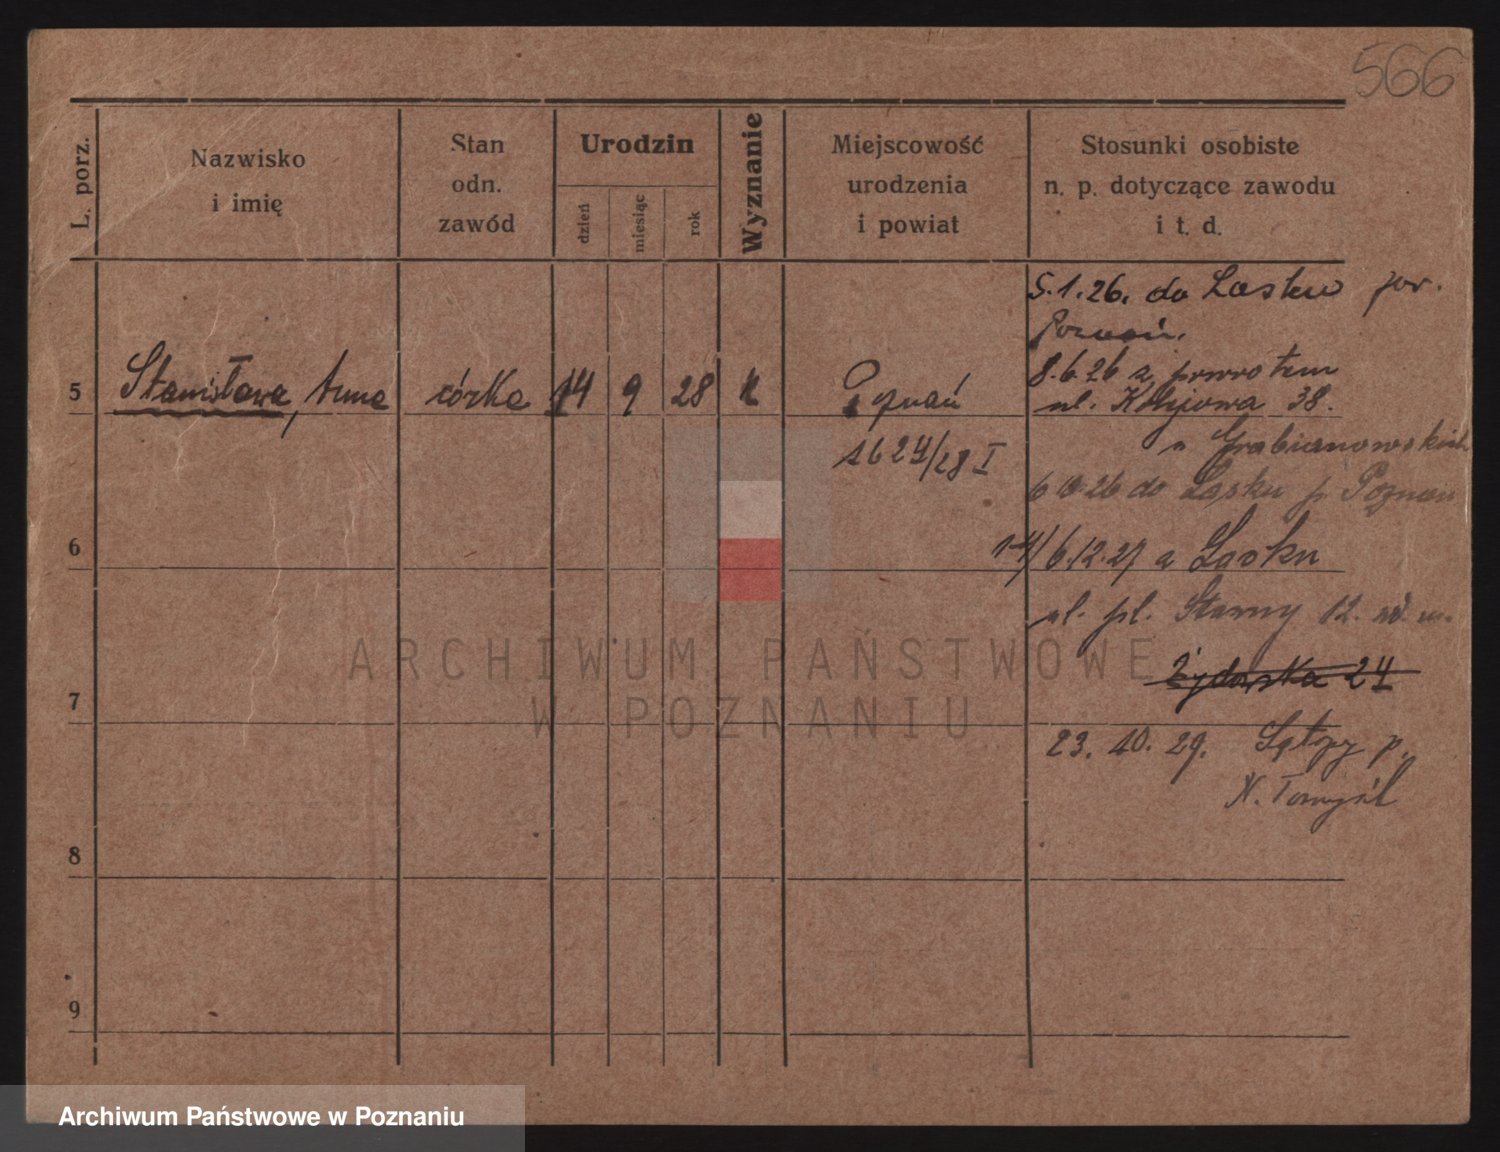 566
L. porz.
Nazwisko
i imię
Stan
odn.
zawód
Urodzin
dzień
miesiąc
rok
Wyznanie
Miejscowość
urodzenia
i powiat
Stosunki osobiste
n. p. dotyczące zawodu
i t. d.
5.1.26. do Lasku pow.
Poznań.
8.6.26 z powrotem
5 Stanisława, Anna córka 14 9 28 k Poznań
ul. 38.
1624/28 I
6 do Lasku p. Poznań
6
1-4/6.12.27 z Lasku
ul. pl. 12.
Żydowska 24
7
23. 10. 29. p.
N. Tomyśl
8
9
ARCHIWUM PAŃSTWOWE
W POZNANIU
Archiwum Państwowe w Poznaniu